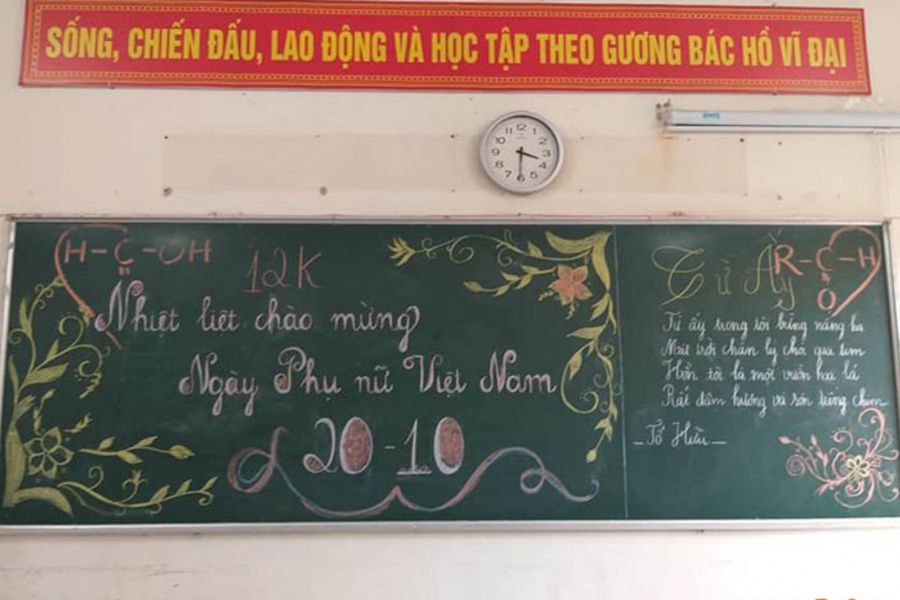 SỐNG, CHIẾN ĐẤU, LAO ĐỘNG VÀ HỌC TẬP THEO GƯƠNG BÁC HỒ VĨ ĐẠI
12 1 2 3 4 5 6 7 8 9 10 11
H-C-OH
12K
Nhiệt liệt chào mừng
Ngày Phụ nữ Việt Nam
20-10
Từ Ấy
R-C-H
O
Từ ấy trong tôi bừng nắng hạ
Mặt trời chân lý chói qua tim
Hồn tôi là một vườn hoa lá
Rất đậm hương và rộn tiếng chim
_Tố Hữu_